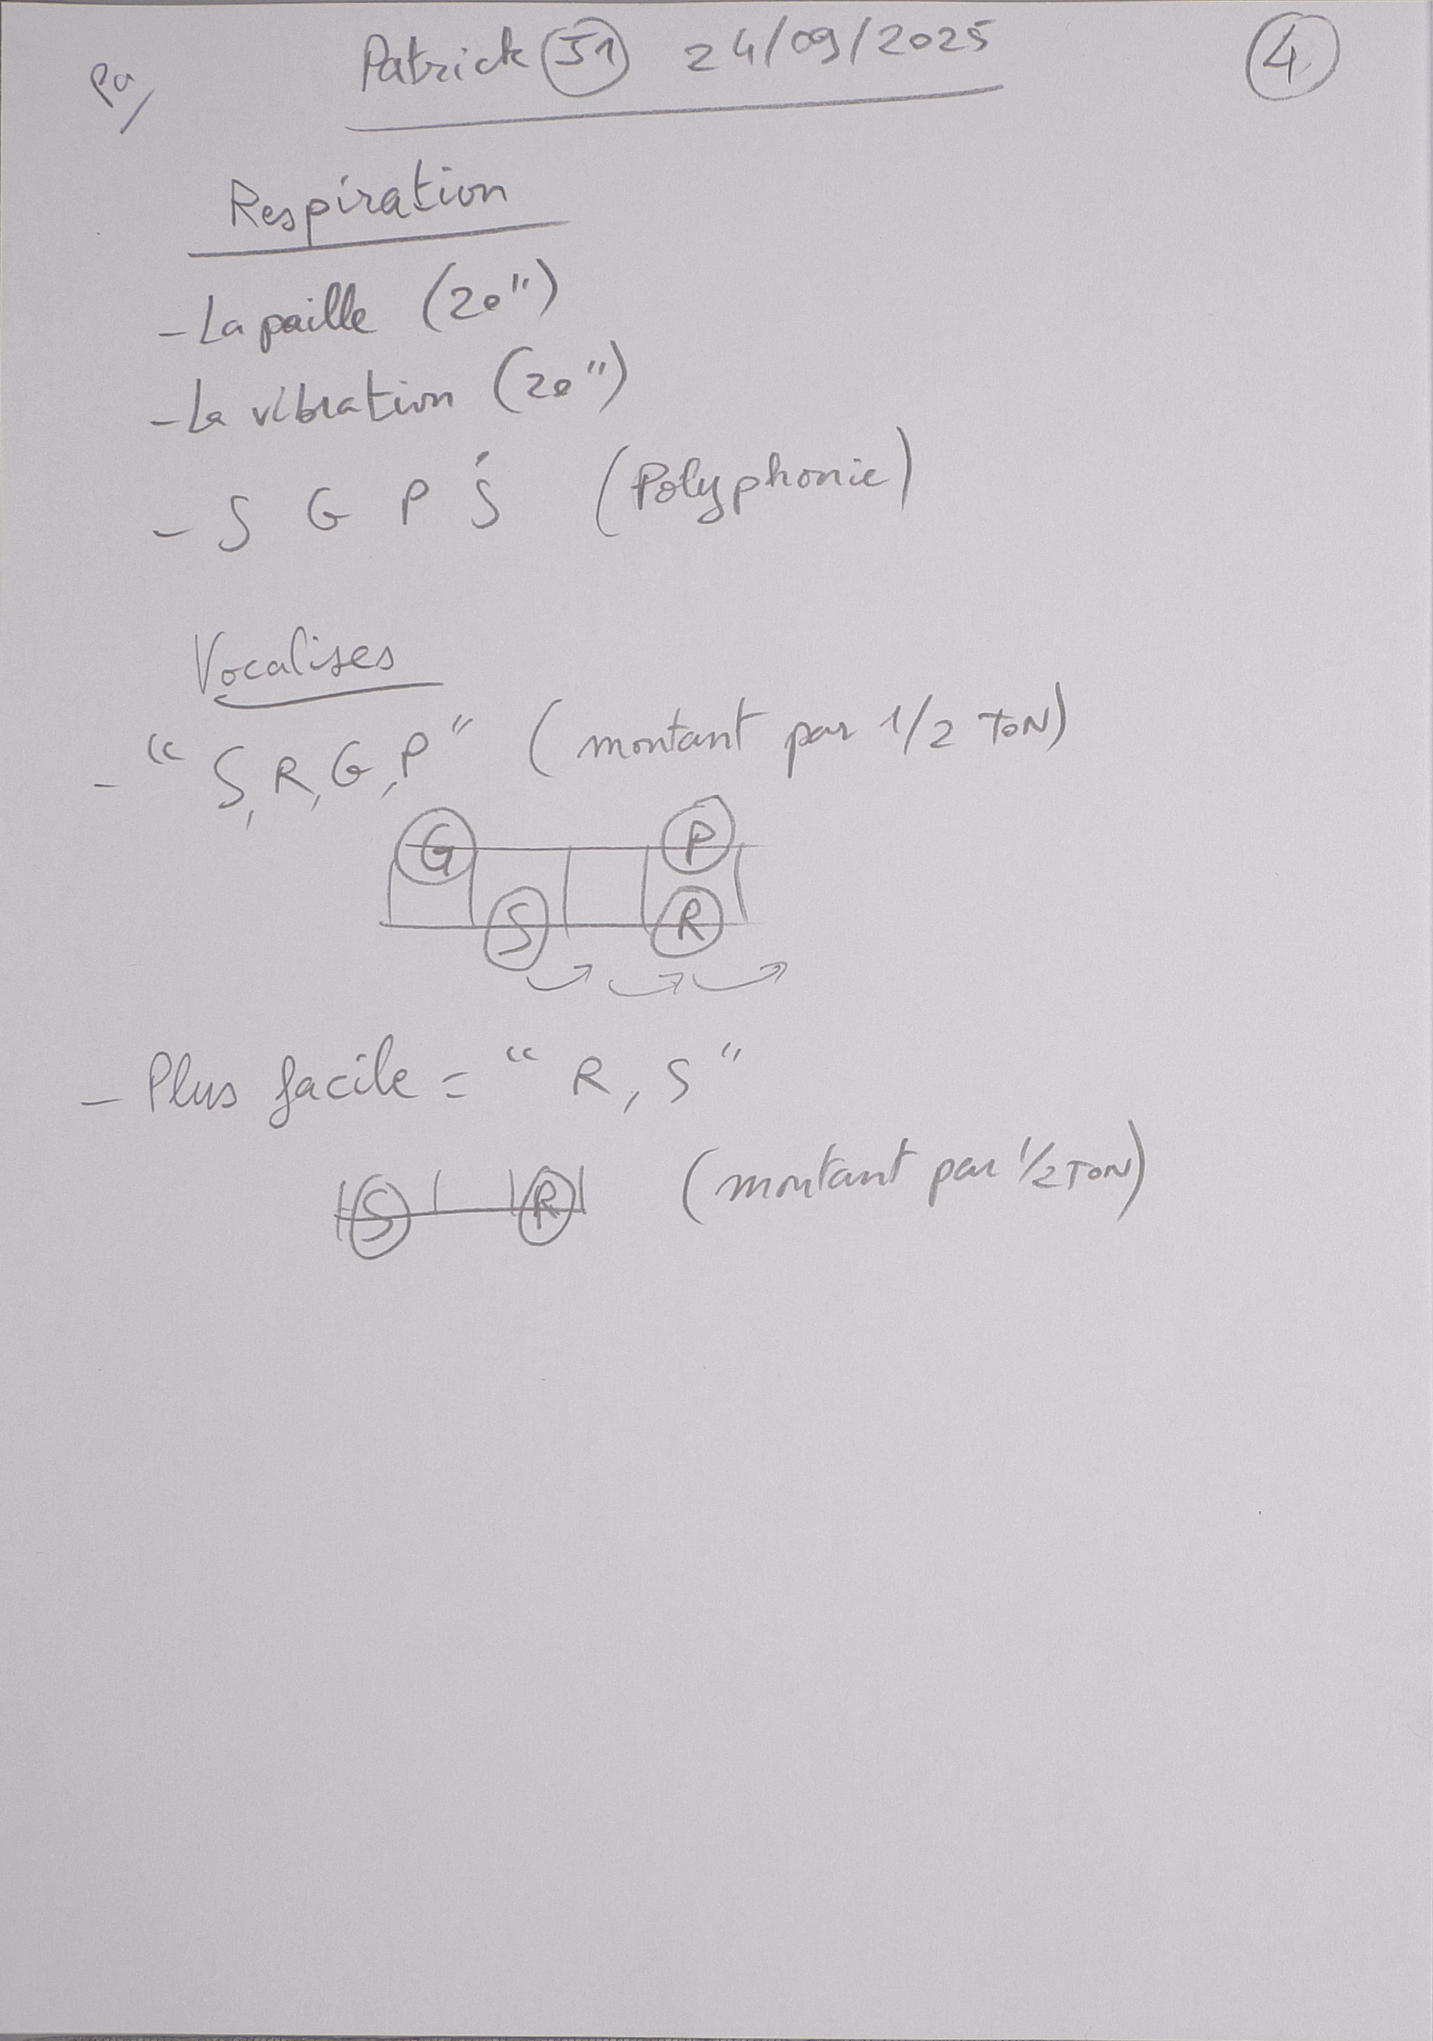 Pa/ Patrick J1 24/09/2025 4
Respiration
- La paille (20")
- La vibration (20")
- S G P Ṡ (Polyphonie)
Vocalises
- "S, R, G, P" (montant par 1/2 TON)
G P
S R
- Plus facile = "R, S"
S R (montant par 1/2 TON)